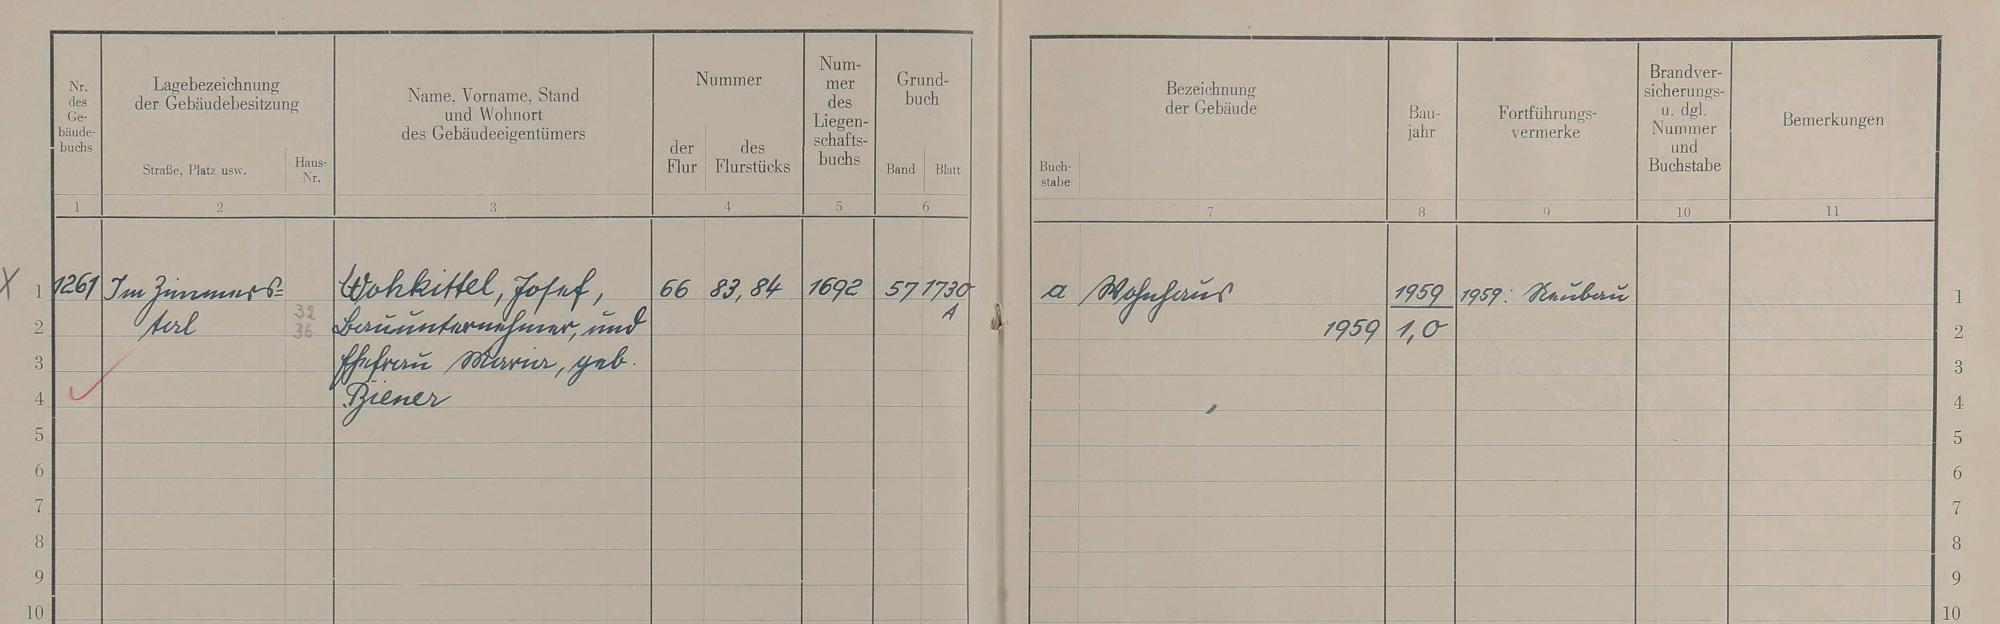 Nr.
des
Ge-
bäude-
buchs
Lagebezeichnung
der Gebäudebesitzung
Straße, Platz usw.
Haus-
Nr.
Name, Vorname, Stand
und Wohnort
des Gebäudeeigentümers
Nummer
der
Flur
des
Flurstücks
Num-
mer
des
Liegen-
schafts-
buchs
Grund-
buch
Band
Blatt
Buch-
stabe
Bezeichnung
der Gebäude
Bau-
jahr
Fortführungs-
vermerke
Brandver-
sicherungs-
u. dgl.
Nummer
und
Buchstabe
Bemerkungen
1 2 3 4 5 6 7 8 9 10 11
X 1 1261 Im Zimmers= Wohkittel, Josef, 66 83, 84 1692 57 1730 a Wohnhaus 1959 1959: Neubau 1
2 tal 32 36 Bauunternehmer, und A 1959 1,0 2
3 Ehefrau Maria, geb. 3
4 Biener 4
5 5
6 6
7 7
8 8
9 9
10 10